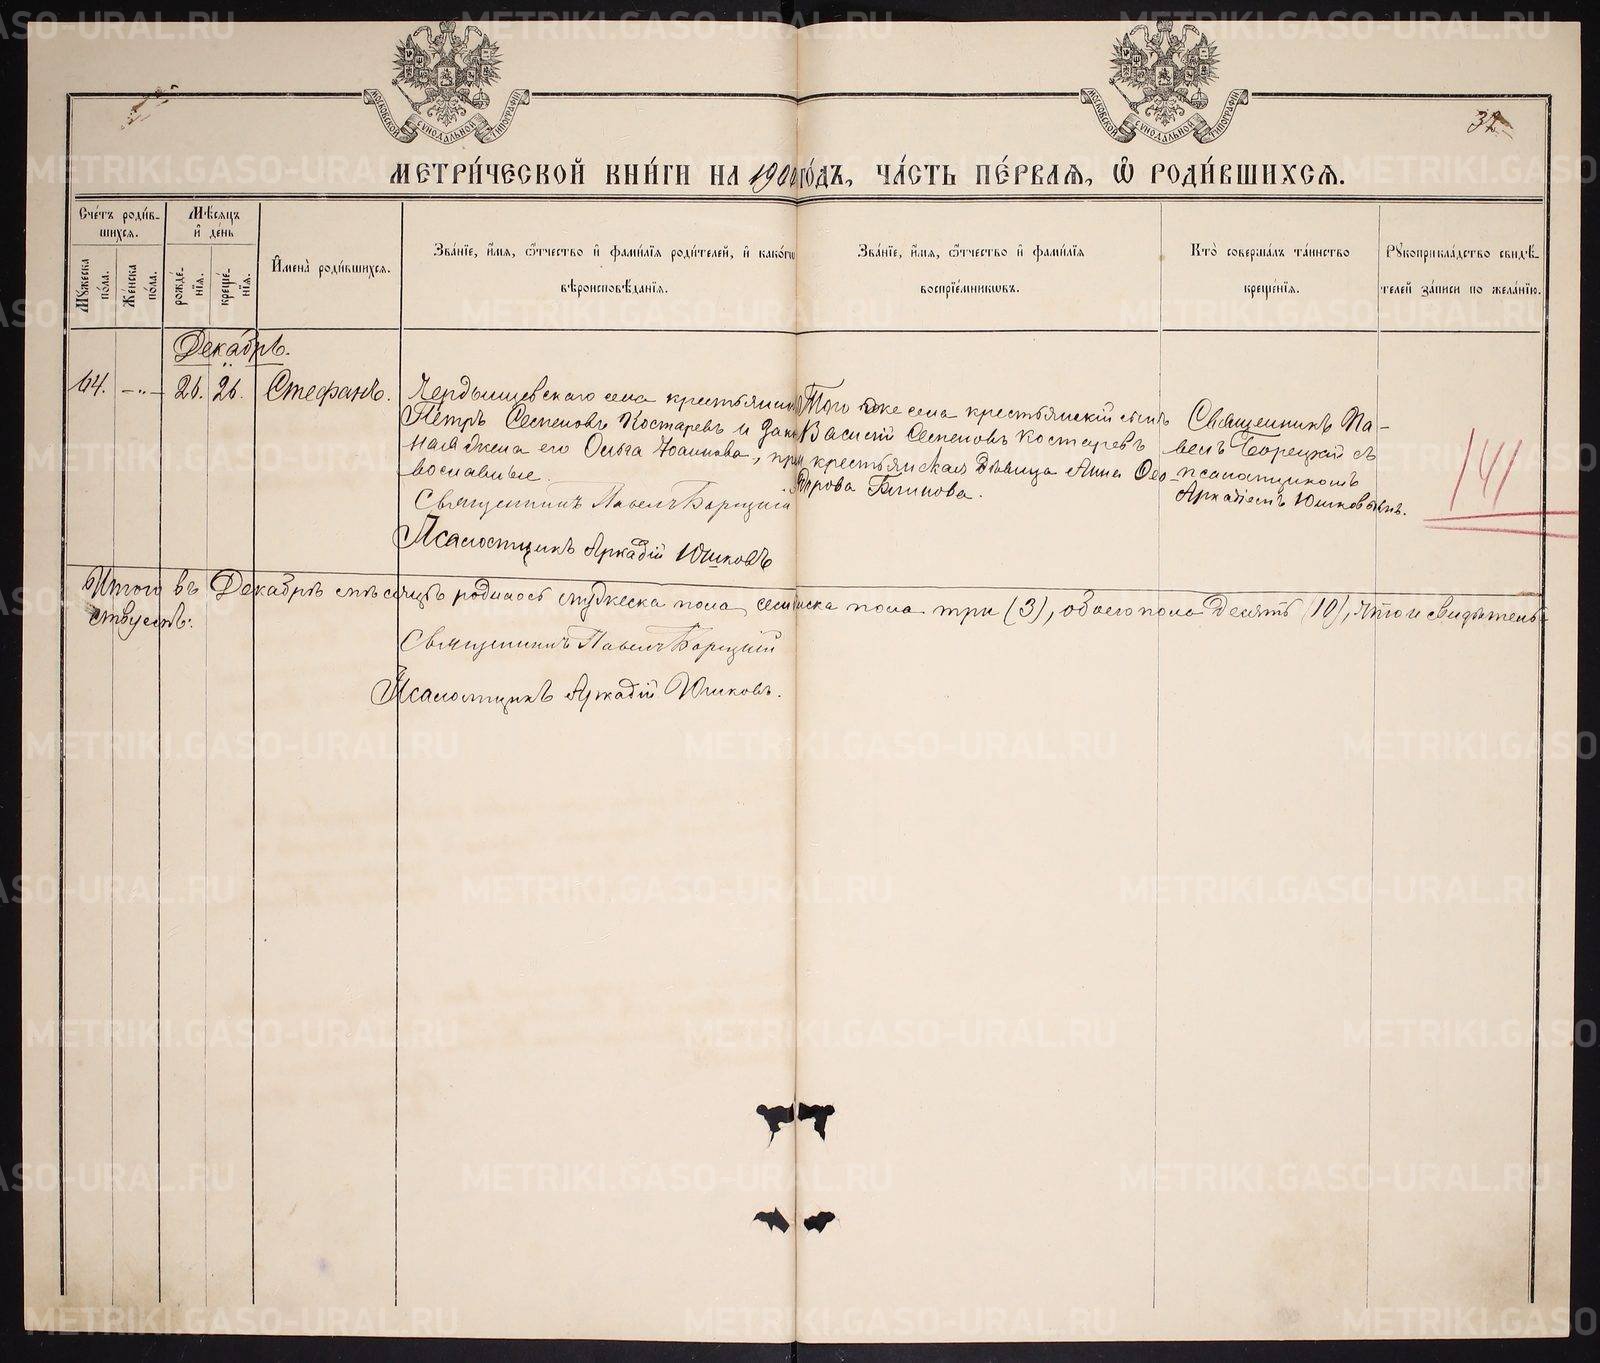 МОСКОВСКОЙ СѴНОДАЛЬНОЙ ТИПОГРАФІИ
МОСКОВСКОЙ СѴНОДАЛЬНОЙ ТИПОГРАФІИ
32
МЕТРИ́ЧЕСКОЙ КНИ́ГИ НА 1900 ГО́ДЪ, ЧА́СТЬ ПЕ́РВАѦ, Ѽ РОДИ́ВШИХСѦ.
Сче́тъ роди́в-
шихсѧ.
Мѣ́сѧцъ
и҆ де́нь
Мꙋ́жеска по́ла.
Же́нска по́ла.
рожде́-нїѧ.
креще́-нїѧ.
И҆мена̀ роди́вшихсѧ.
Зва́нїе, и҆́мѧ, ѻ҆́тчество и҆ фами́лїѧ роди́телей, и҆ како́гѡ
вѣроисповѣ́данїѧ.
Зва́нїе, и҆́мѧ, ѻ҆́тчество и҆ фами́лїѧ
воспрїе́мникѡвъ.
Кто̀ соверша́лъ та́инство
креще́нїѧ.
Рꙋкоприкла́дство свидѣ́-
телей за́писи по жела́нїю.
Декабрь.
64. —"— 26. 26. Стефанъ.
Чердынцевскаго села крестьянинъ
Петръ Семеновъ Костаревъ и закон
ная жена его Ольга Іоаннова, пра
вославные.
Священникъ Павелъ Борецкій
Псаломщикъ Аркадій Юшковъ
Того же села крестьянскій сынъ
Василій Семеновъ Костаревъ
и крестьянская дѣвица Анна Ѳео-
дорова Блинова.
Священникъ Па-
велъ Борецкій съ
псаломщикомъ
Аркадіемъ Юшковымъ.
141
Итого въ Декабрѣ мѣсяцѣ родилось мужеска пола семь, женска пола три (3), обоего пола десять (10), что и свидѣтель-
ствуемъ:
Священникъ Павелъ Борецкій
Псаломщикъ Аркадій Юшковъ.
METRIKI.GASO-URAL.RU